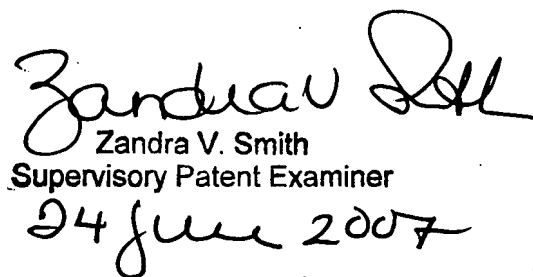 Zandra V Smith
Zandra V. Smith
Supervisory Patent Examiner
24 June 2007